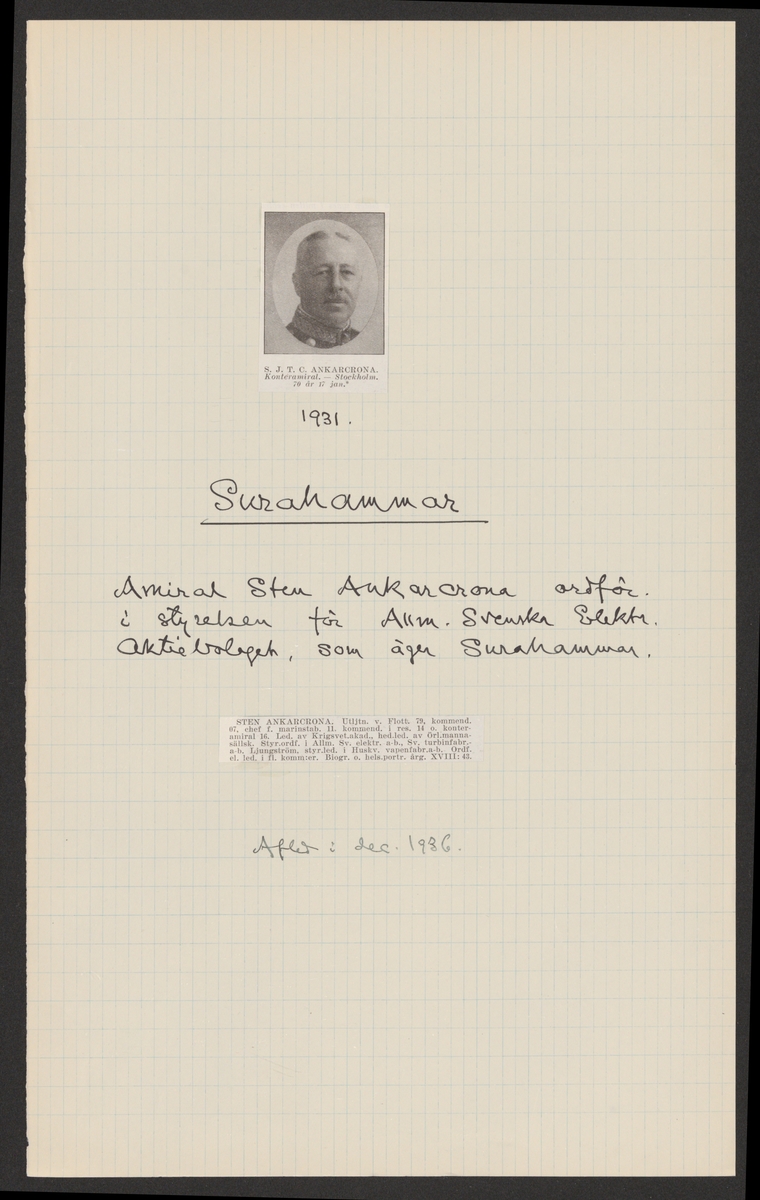 S. J. T. C. ANKARCRONA.
Konteramiral. — Stockholm.
70 år 17 jan.*
1931.
Surahammar
Amiral Sten Ankarcrona ordför.
i styrelsen för Allm. Svenska Elektr.
Aktiebolaget, som äger Surahammar.
STEN ANKARCRONA. Utljtn. v. Flott. 79, kommend.
07, chef f. marinstab. 11. kommend. i res. 14 o. konter-
amiral 16. Led. av Krigsvet.akad., hed.led. av Örl.manna-
sällsk. Styr.ordf. i Allm. Sv. elektr. a-b., Sv. turbinfabr.-
a-b. Ljungström, styr.led. i Huskv. vapenfabr.a-b. Ordf.
el. led. i fl. komm:er. Biogr. o. hels.portr. årg. XVIII: 43.
Afled i dec. 1936.